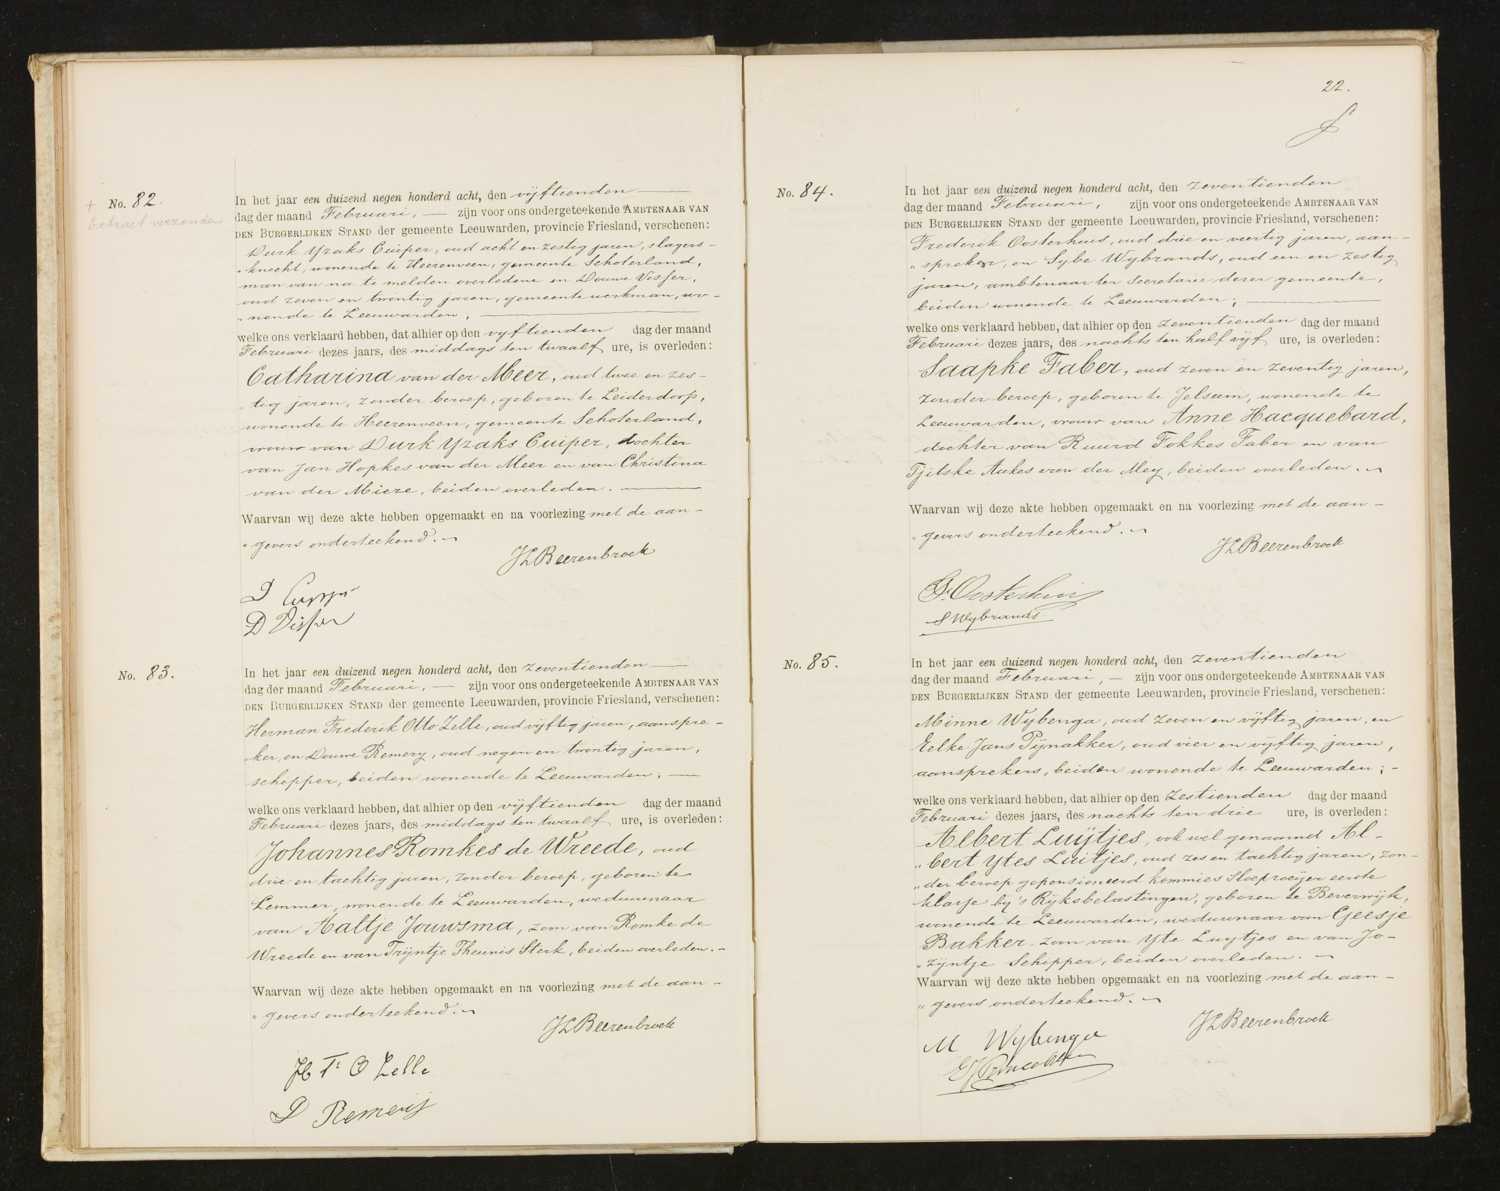 No. 82.
+
Extract verzonden
In het jaar een duizend negen honderd acht, den vijftienden
dag der maand Februari, zijn voor ons ondergeteekende AMBTENAAR VAN
DEN BURGERLIJKEN STAND der gemeente Leeuwarden, provincie Friesland, verschenen:
Durk Yzaks Cuiper, oud acht en zestig jaren, slagers-
knecht, wonende te Heerenveen, gemeente Schoterland,
man van na te melden overledene en Douwe Visser,
oud zeven en twintig jaren, gemeentewerkman, wo-
nende te Leeuwarden,
welke ons verklaard hebben, dat alhier op den vijftienden dag der maand
Februari dezes jaars, des middags ten twaalf ure, is overleden:
Catharina van der Meer, oud twee en zes-
tig jaren, zonder beroep, geboren te Leiderdorp,
wonende te Heerenveen, gemeente Schoterland,
vrouw van Durk Yzaks Cuiper, dochter
van Jan Hopkes van der Meer en van Christina
van der Mieze, beiden overleden.
Waarvan wij deze akte hebben opgemaakt en na voorlezing met de aan-
gevers onderteekend.
JLBeerenbrock
D Cuyper
D Visser
No. 83.
In het jaar een duizend negen honderd acht, den zeventienden
dag der maand Februari, zijn voor ons ondergeteekende AMBTENAAR VAN
DEN BURGERLIJKEN STAND der gemeente Leeuwarden, provincie Friesland, verschenen:
Herman Frederik Otto Zelle, oud vijftig jaren, aanspre-
ker, en Douwe Remery, oud negen en twintig jaren,
schipper, beiden wonende te Leeuwarden;
welke ons verklaard hebben, dat alhier op den vijftienden dag der maand
Februari dezes jaars, des middags ten twaalf ure, is overleden:
Johannes Romkes de Wreede, oud
drie en tachtig jaren, zonder beroep, geboren te
Lemmer, wonende te Leeuwarden, weduwnaar
van Aaltje Jouwsma, zoon van Romke de
Wreede en van Trijntje Theunis Sterk, beiden overleden.
Waarvan wij deze akte hebben opgemaakt en na voorlezing met de aan-
gevers onderteekend.
JLBeerenbrock
H F O Zelle
D Remerij
22.
No. 84.
In het jaar een duizend negen honderd acht, den zeventienden
dag der maand Februari, zijn voor ons ondergeteekende AMBTENAAR VAN
DEN BURGERLIJKEN STAND der gemeente Leeuwarden, provincie Friesland, verschenen:
Frederik Oosterhuis, oud drie en veertig jaren, aan-
spreker, en Sybe Wybrands, oud een en zestig
jaren, ambtenaar ter Secretarie dezer gemeente,
beiden wonende te Leeuwarden;
welke ons verklaard hebben, dat alhier op den zeventienden dag der maand
Februari dezes jaars, des nachts ten half vijf ure, is overleden:
Saapke Faber, oud zeven en zeventig jaren,
zonder beroep, geboren te Jelsum, wonende te
Leeuwarden, vrouw van Anne Hacquebard,
dochter van Ruurd Fokkes Faber en van
Tjitske Aukes van der Mey, beiden overleden.
Waarvan wij deze akte hebben opgemaakt en na voorlezing met de aan-
gevers onderteekend.
JLBeerenbrock
F. Oosterhuis
S Wybrands
No. 85.
In het jaar een duizend negen honderd acht, den zeventienden
dag der maand Februari, zijn voor ons ondergeteekende AMBTENAAR VAN
DEN BURGERLIJKEN STAND der gemeente Leeuwarden, provincie Friesland, verschenen:
Minne Wybenga, oud zeven en vijftig jaren, en
Eelke Jans Pijnakker, oud vier en vijftig jaren,
aansprekers, beiden wonende te Leeuwarden;
welke ons verklaard hebben, dat alhier op den zestienden dag der maand
Februari dezes jaars, des nachts ten drie ure, is overleden:
Albert Luijtjes, ook wel genaamd Al-
bert Ytes Luitjes, oud zes en tachtig jaren, zon-
der beroep gepensioneerd kommies Sloeproeijer eerste
klasse bij 's Rijksbelastingen, geboren te Beverwijk,
wonende te Leeuwarden, weduwnaar van Geesje
Bakker, zoon van Yte Luytjes en van Jo-
zyntje Schipper, beiden overleden.
Waarvan wij deze akte hebben opgemaakt en na voorlezing met de aan-
gevers onderteekend.
JLBeerenbrock
M Wybenga